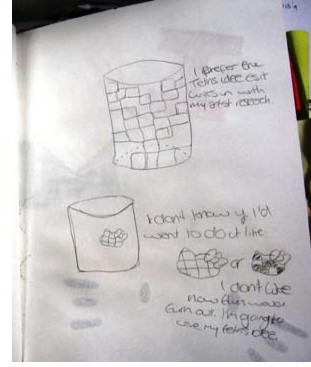 I prefer the
Tetris idea as it
links in with
my artist research
I don't know if I'd
want to do it like
or
I don't like
how this would
turn out. I'm going to
use my tetris idea